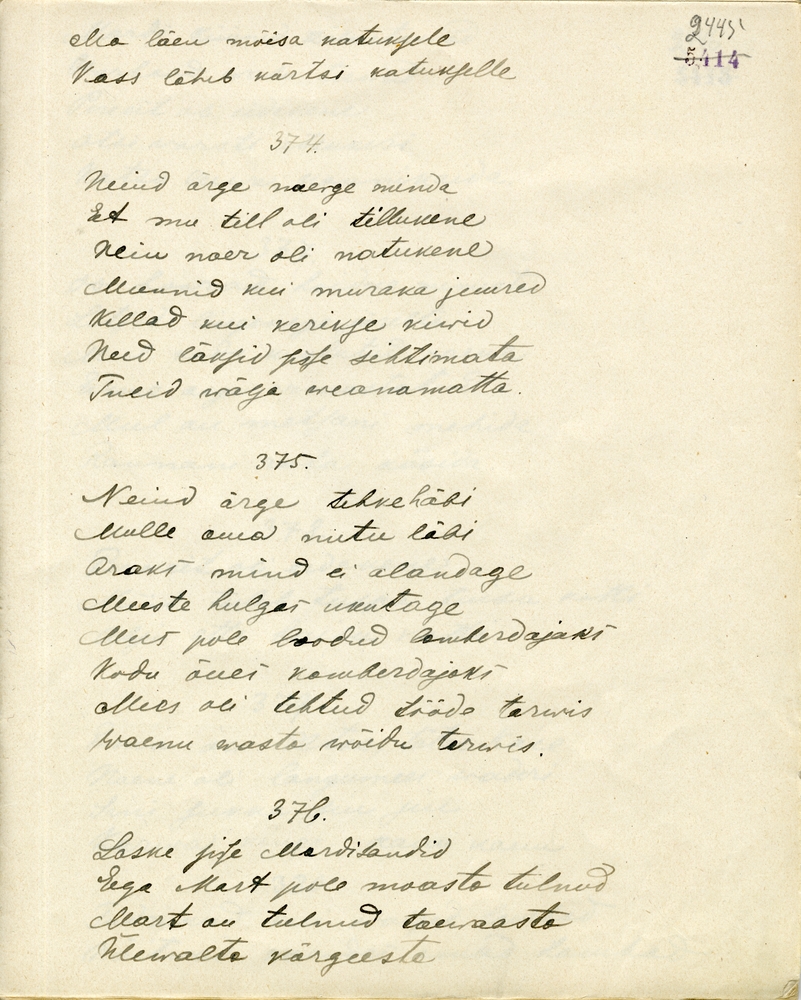 2445
5414
Ma läen mõisa katuksele
Kass läheb kõrtsi katukselle
374.
Neiud ärge naerge minda
Et mu till oli tillukene
Neiu naer oli natukene
Munnid kui muraka juured
Kellad kui kerikse kiwid
Need läksid sisse sihtimata
Tulid wälja weanamatta.
375.
Neiud ärge tehke häbi
Mulle oma nutu läbi
Araks mind ei alandage
Meeste hulgas unutage
Mees pole loodud lomberdajaks
Kodu õues komberdajaks
Mees oli tehtud tööde tarwis
waenu wasta wõidu tarwis.
376.
Laske sisse Mardisandid
Ega Mart pole maasta tulnud
Mart on tulnud taewaasta
Ülewalta kõrgeesta